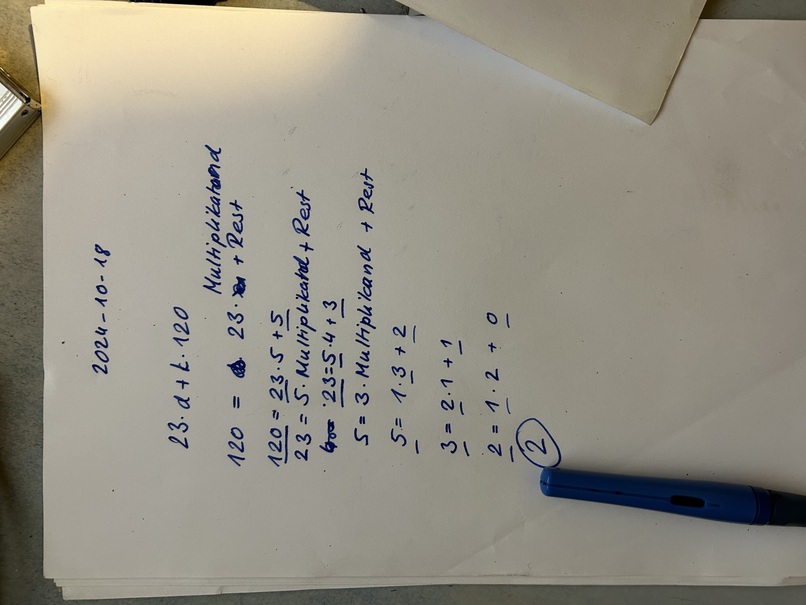 2024-10-18
23·d+k·120
Multiplikatand
120 = 23· + Rest
120 = 23·5 + 5
23 = 5·Multiplikand + Rest
23=5·4 + 3
5 = 3·Multiplikand + Rest
5 = 1·3 + 2
3 = 2·1 + 1
2 = 1·2 + 0
2